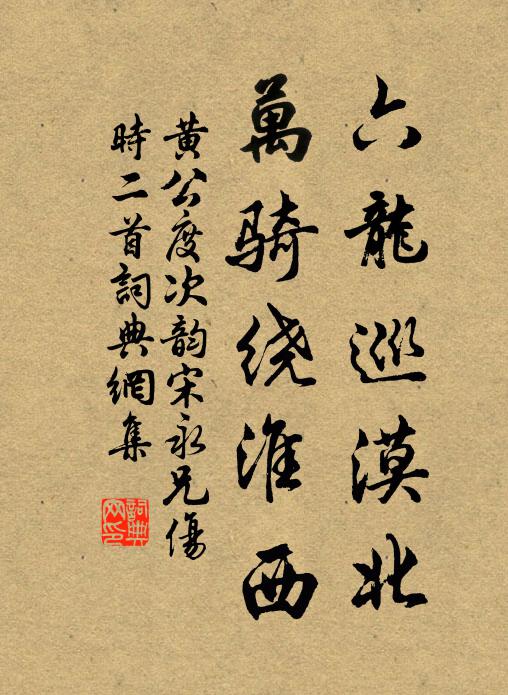 六龍巡漠北
萬骑绕淮西
黄公度次韵宋永兄傷
時二首詞典網集
詞典网印